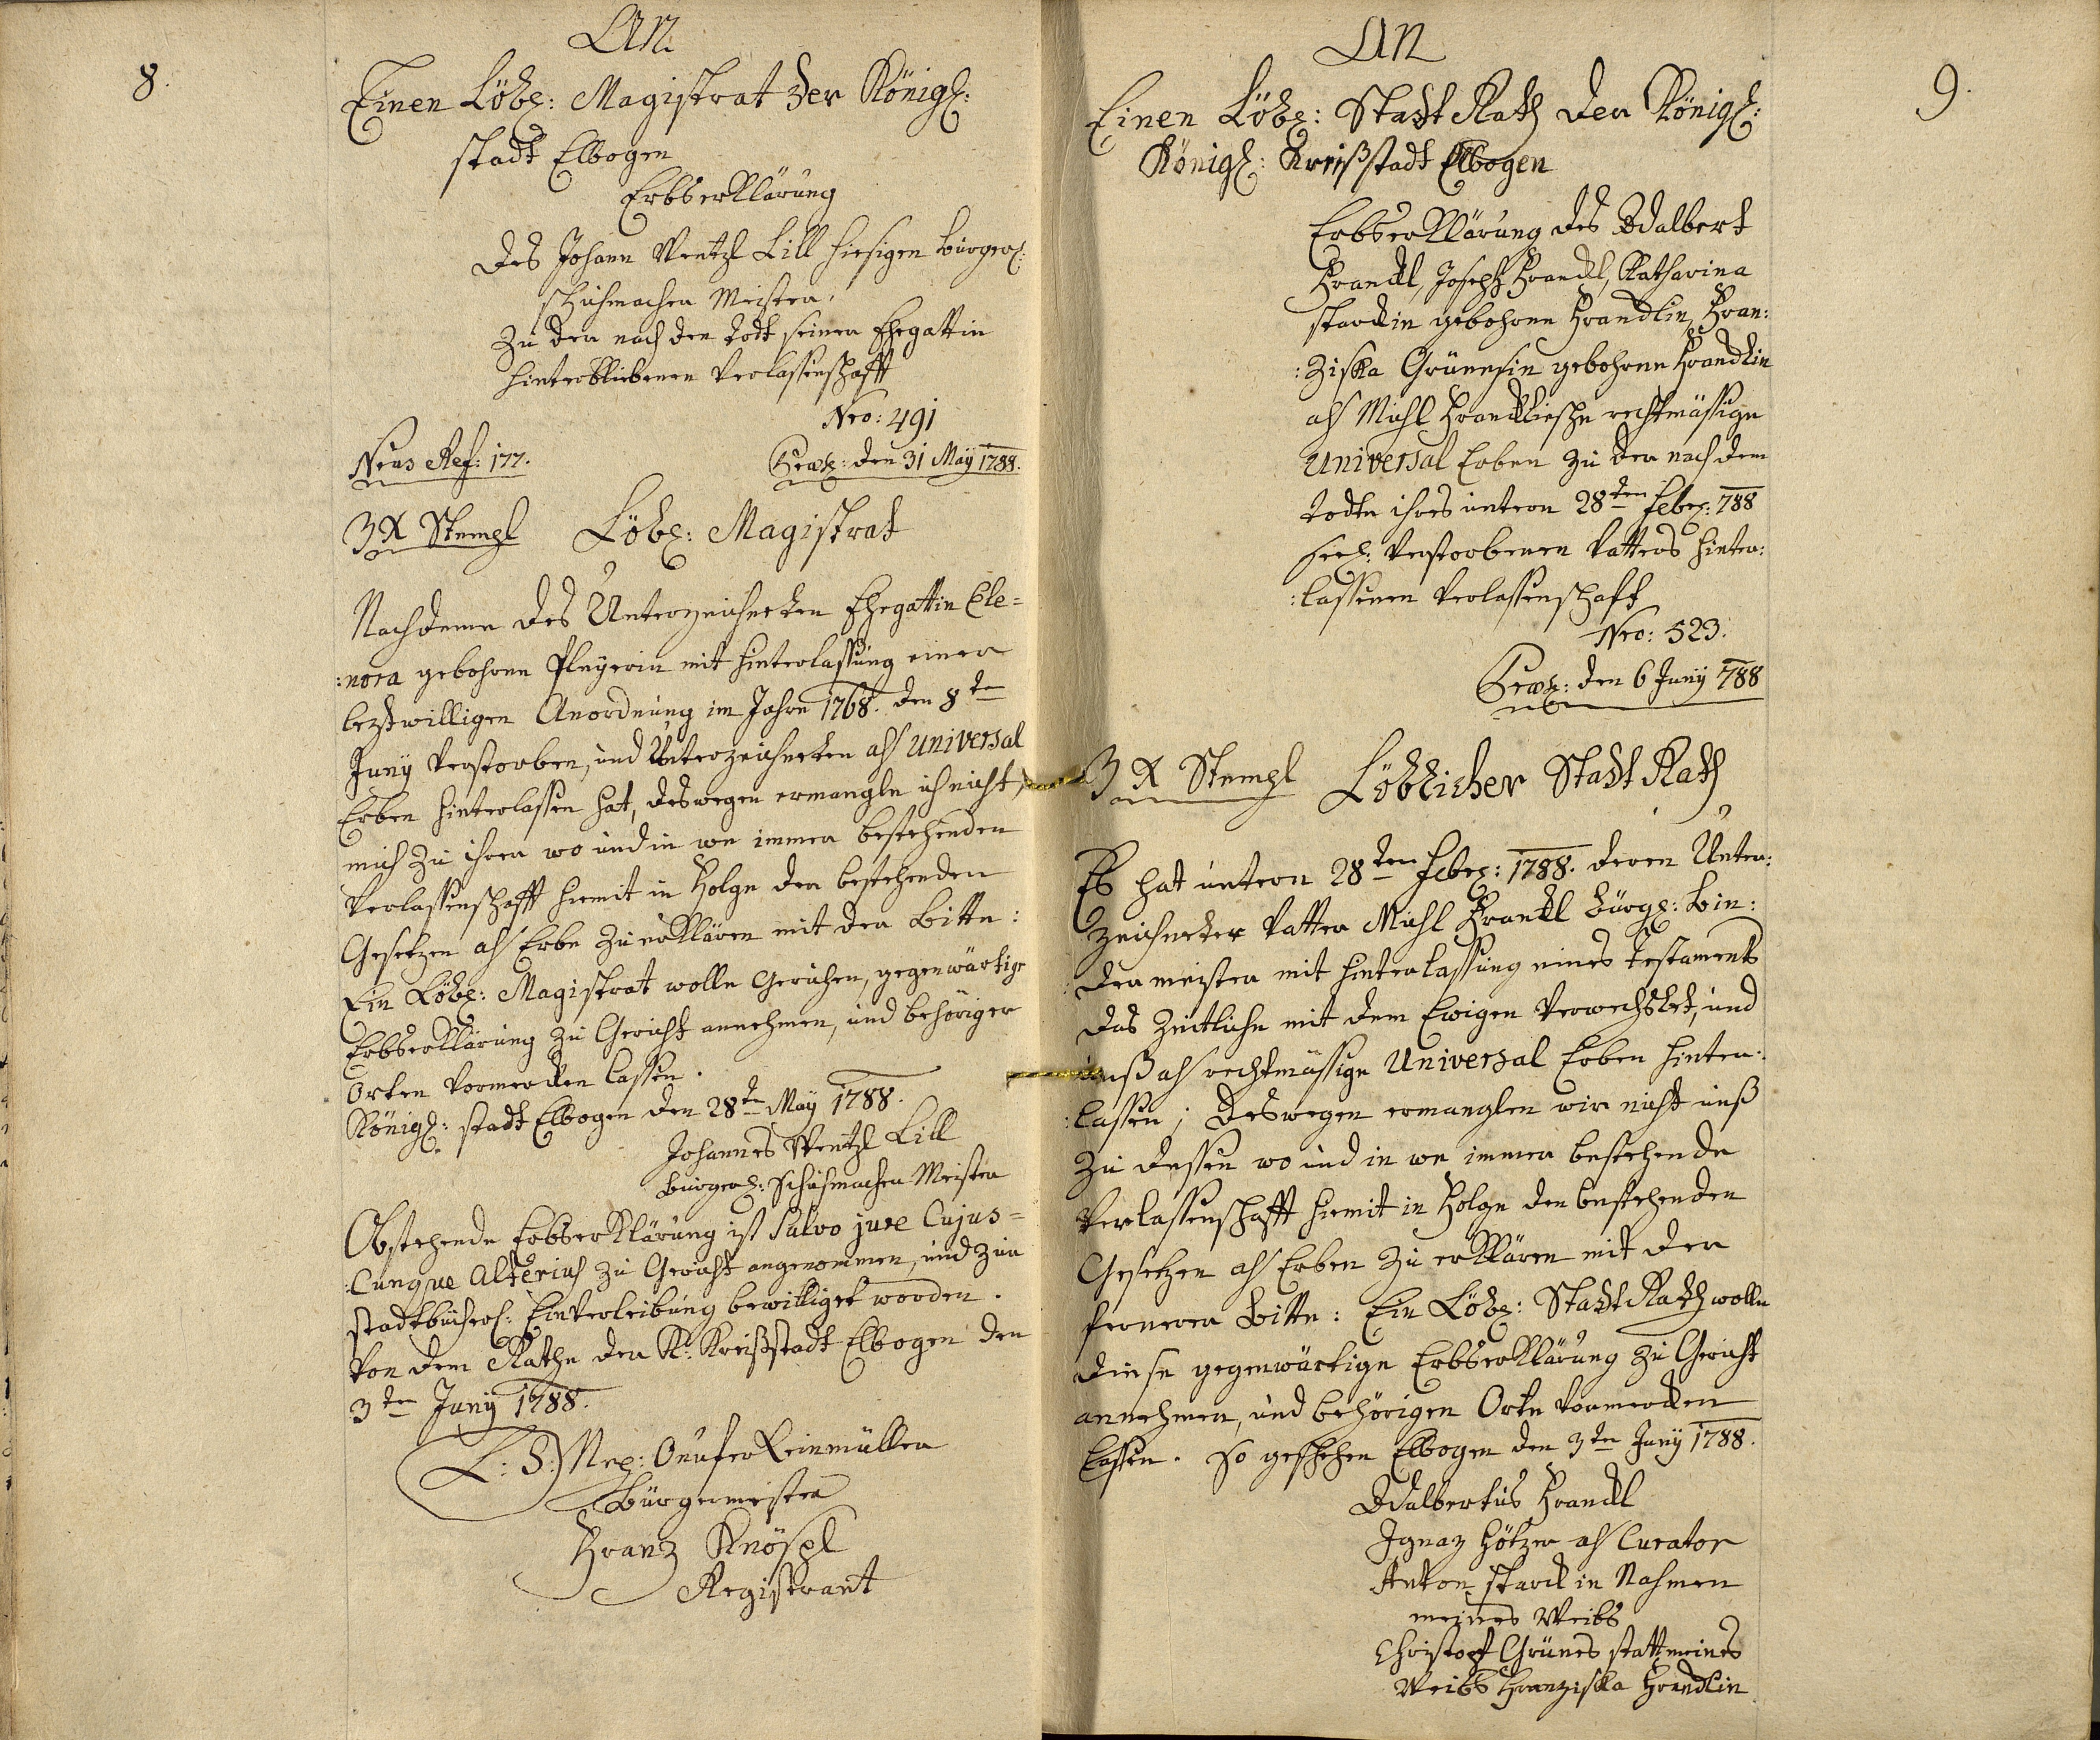 8.
An
Einen Löbl: Magistrat der Königl:
stadt Elbogen
Erbserklärung
des Johann Wentzl Lill hiesigen burgerl:
schuhmacher Meister,
zu der nach den Todt seiner Ehegattin
hinterbliebenen Verlassenschafft
Nro: 491
Neus Ref: 177.
Præs: den 31 Maÿ 1788.
3 X Stempl Löbl: Magistrat
Nachdeme des Unterzeichneten Ehegattin Ele=
:nora gebohrne Pleyerin mit hinterlassung einer
leztwilligen Anordnung im Jahre 1768. den 8te
Junÿ Verstorben, und Unterzeichneten als Universal
Erben hinterlassen hat, deswegen ermangle ich nicht,
mich zu ihrer wo und in we immer bestehenden
Verlassenschafft hiemit in Folge der bestehenden
Gesetzen als Erbe zu erklären mit der Bitte:
Ein Löbl: Magistrat wolle Geruhen, gegenwärtige
Erbserklärung zu Gericht annehmen, und behöriger
Orten Vormercken lassen.
Königl: stadt Elbogen den 28te Maÿ 1788.
Johannes Wentzl Lill
burgerl: Schuhmacher Meister
Obstehende Erbserklärung ist Salvo jure Cujus=
:Cunque Alterius zu Gericht angenommen, und zur
stadtbücherl: Einverleibung bewilliget worden.
Von dem Rathe der K: Kreißstadt Elbogen den
3ten Junÿ 1788.
L: S: Onufer Reinmüller
Bürgermeister
Franz Knöspl
Registrant
9.
An
Einen Löbl: Stadt Rath der Königl:
Königl: Kreißstadt Elbogen
Erbserklärung des Adalbert
Frandl, Joseph Frandl, Katharina
starckin gebohrne Frandlin, Fran:
:ziska Grünesin gebohrne Frandlin
als Michl Frandlische rechtmässige
Universal Erben zu der nach dem
Todte ihres untern 28ten Febr: 788
seel: Verstorbenen Vatters hinter:
:lassenen Verlassenschaft
Nro: 523.
Præs: den 6 Junÿ 788
3 X Stempl Löblicher Stadt Rath
Es hat untern 28ten Febr: 1788. deren Unter:
zeichneter Vatter Michl Frandl bürgl: Bin:
:dermeister mit hinterlassung eines Testaments
das Zeitliche mit dem Ewigen Verwechslet, und
unß als rechtmässige Universal Erben hinter:
:lassen; deswegen ermanglen wir nicht unß
zu dessen wo und in we immer bestehende
Verlassenschafft hiemit in Folge den bestehenden
Gesetzen als Erben zu erklären mit der
ferneren Bitte: Ein Löbl: Stadt Rath wolle
diese gegenwärtige Erbserklärung zu Gericht
annehmen, und behörigen Orte Vormercken
lassen. So geschehen Elbogen den 3ten Junÿ 1788.
Adalbertus Frandl
Ignaz Hötzer als Curator
Anton starck in Nahmen
meines Weibs
Christoff Grünes statt meines
Weibs Franziska Frandlin